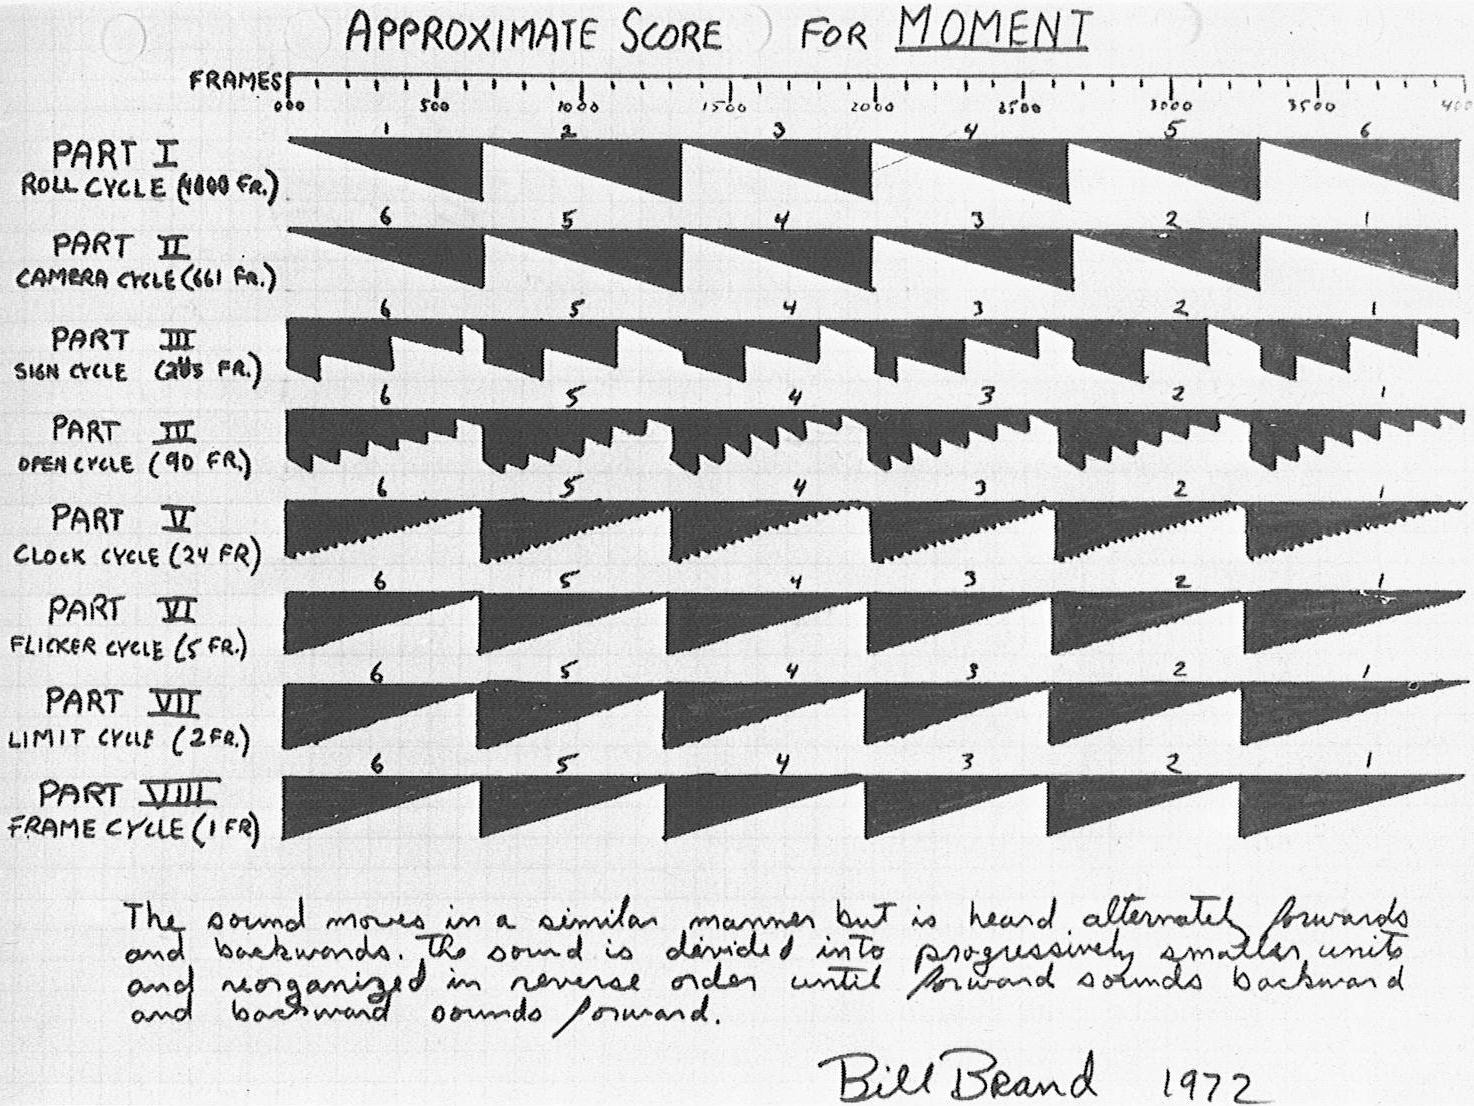 APPROXIMATE SCORE FOR MOMENT
FRAMES
000 500 1000 1500 2000 2500 3000 3500 400
1 2 3 4 5 6
PART I
ROLL CYCLE (4000 FR.)
6 5 4 3 2 1
PART II
CAMERA CYCLE (661 FR.)
6 5 4 3 2 1
PART III
SIGN CYCLE FR.)
6 5 4 3 2 1
PART IIII
OPEN CYCLE (90 FR.)
6 5 4 3 2 1
PART V
CLOCK CYCLE (24 FR)
6 5 4 3 2 1
PART VI
FLICKER CYCLE (5 FR.)
6 5 4 3 2 1
PART VII
LIMIT CYCLE (2 FR.)
6 5 4 3 2 1
PART VIII
FRAME CYCLE (1 FR)
The sound moves in a similar manner but is heard alternately forwards
and backwards. The sound is divided into progressively smaller units
and reorganized in reverse order until forward sounds backward
and backward sounds forward.
Bill Brand 1972